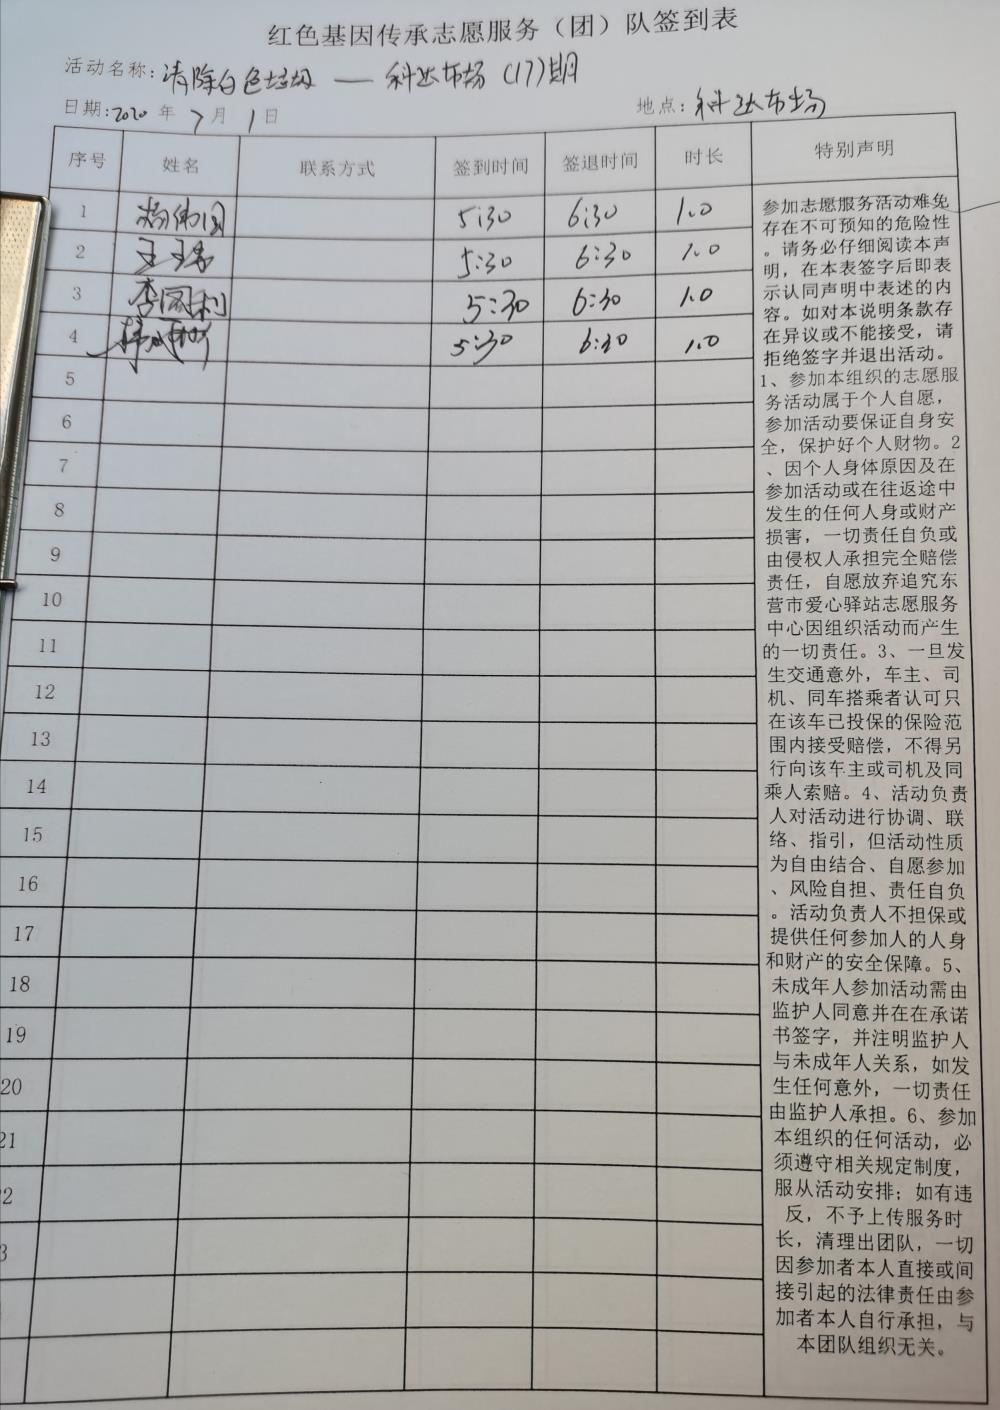 红色基因传承志愿服务（团）队签到表
活动名称：清除白色垃圾 — 科达市场（17）期
日期：2020 年 7 月 1 日 地点：科达市场
序号 姓名 联系方式 签到时间 签退时间 时长 特别声明
1 杨伟国 5:30 6:30 1.0
2 5:30 6:30 1.0
3 李国利 5:30 6:30 1.0
4 5:30 6:30 1.0
5
6
7
8
9
10
11
12
13
14
15
16
17
18
19
20
21
2
3
参加志愿服务活动难免
存在不可预知的危险性
。请务必仔细阅读本声
明，在本表签字后即表
示认同声明中表述的内
容。如对本说明条款存
在异议或不能接受，请
拒绝签字并退出活动。
1、参加本组织的志愿服
务活动属于个人自愿，
参加活动要保证自身安
全，保护好个人财物。2
、因个人身体原因及在
参加活动或在往返途中
发生的任何人身或财产
损害，一切责任自负或
由侵权人承担完全赔偿
责任，自愿放弃追究东
营市爱心驿站志愿服务
中心因组织活动而产生
的一切责任。3、一旦发
生交通意外，车主、司
机、同车搭乘者认可只
在该车已投保的保险范
围内接受赔偿，不得另
行向该车主或司机及同
乘人索赔。4、活动负责
人对活动进行协调、联
络、指引，但活动性质
为自由结合、自愿参加
、风险自担、责任自负
。活动负责人不担保或
提供任何参加人的人身
和财产的安全保障。5、
未成年人参加活动需由
监护人同意并在在承诺
书签字，并注明监护人
与未成年人关系，如发
生任何意外，一切责任
由监护人承担。6、参加
本组织的任何活动，必
须遵守相关规定制度，
服从活动安排；如有违
反，不予上传服务时
长，清理出团队，一切
因参加者本人直接或间
接引起的法律责任由参
加者本人自行承担，与
本团队组织无关。